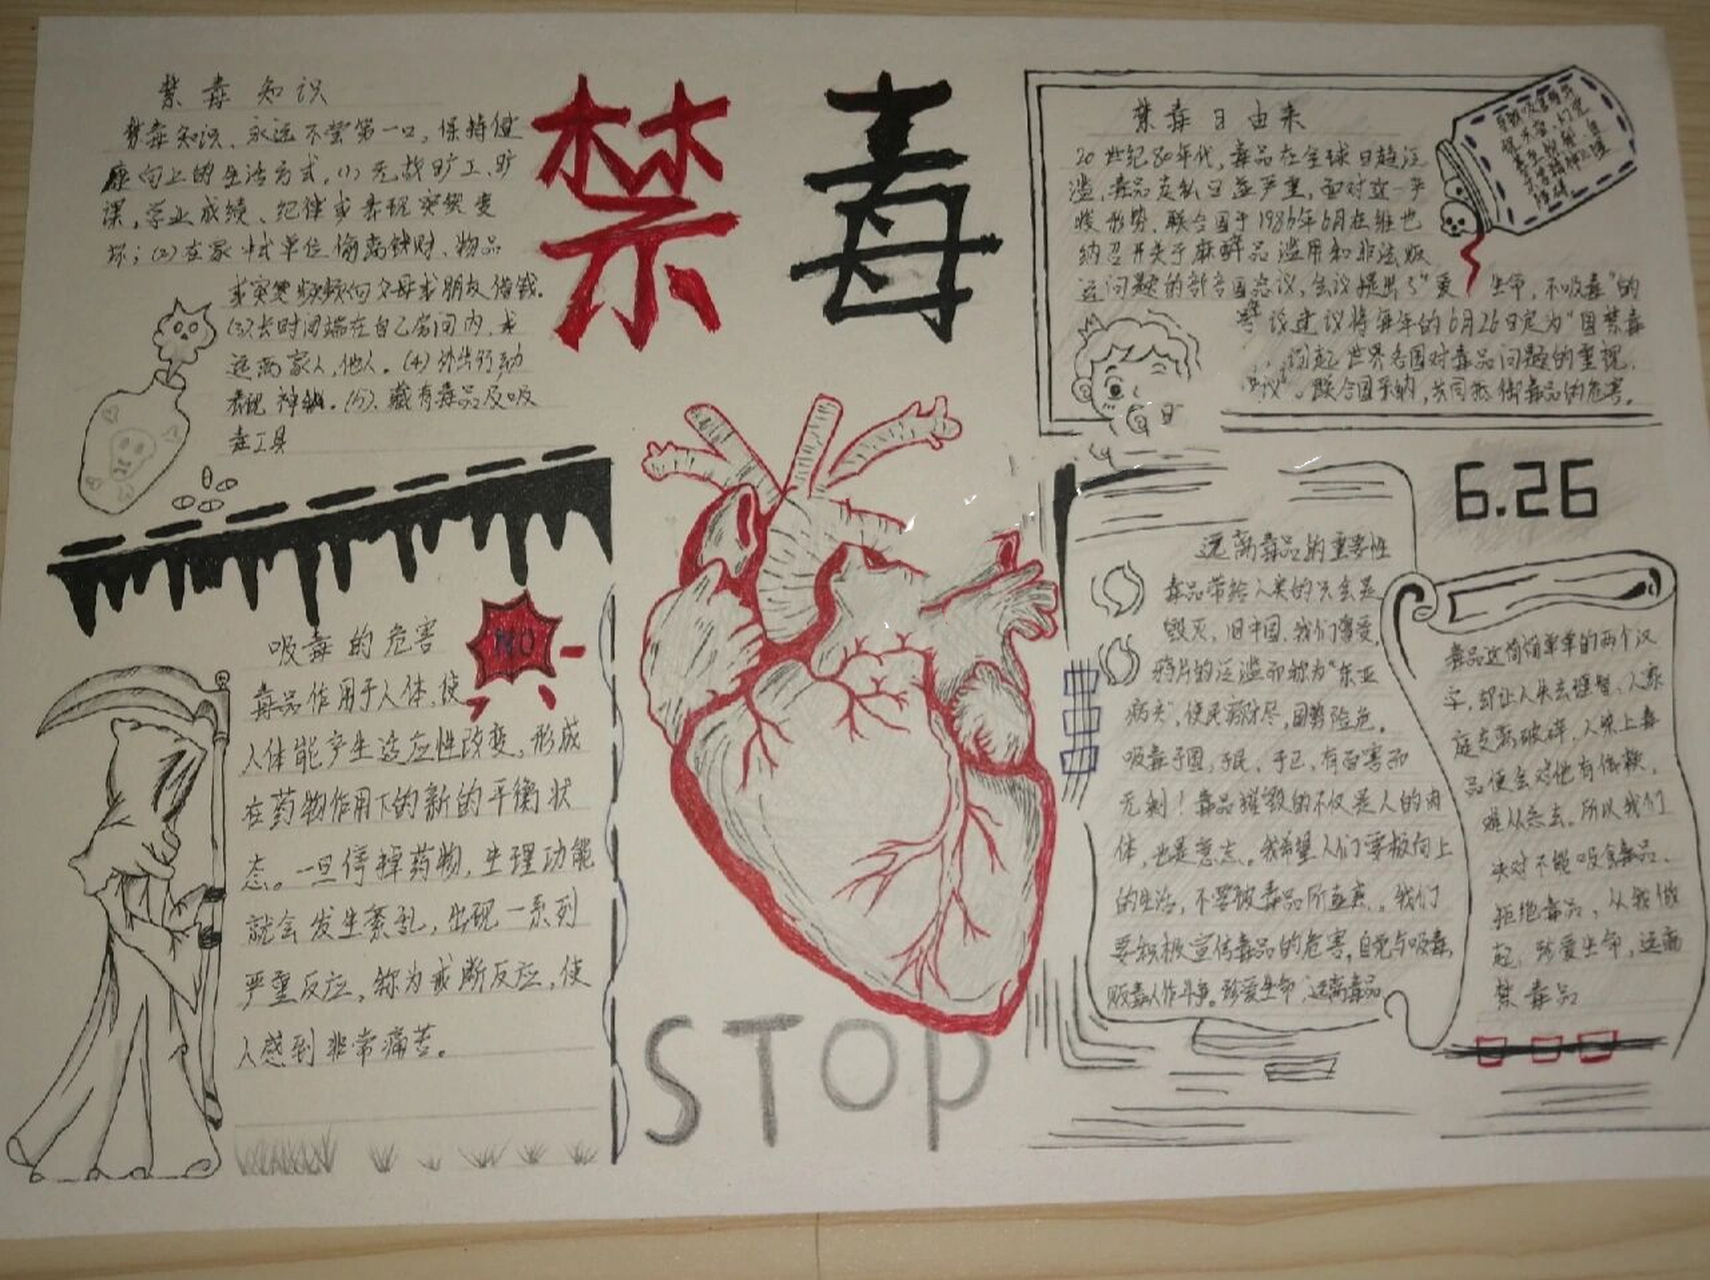 禁毒
禁毒知识
禁毒知识、永远不尝第一口,保持健
康向上的生活方式,(1)无故旷工、旷
课,学业成绩、纪律或表现突然变
坏;(2)在家中或单位偷窃钱财、物品
或突然频频向父母或朋友借钱.
(3)长时间端在自己房间内,或
远离家人,他人.(4)外出行动
表现神秘.(5)、藏有毒品及吸
毒工具
吸毒的危害
NO
毒品作用于人体,使
人体能产生适应性改变,形成
在药物作用下的新的平衡状
态。一旦停掉药物,生理功能
就会发生紊乱,出现一系列
严重反应,称为戒断反应,使
人感到非常痛苦。
STOP
禁毒日由来
20世纪80年代,毒品在全球日趋泛
滥,毒品走私日益严重,面对这一严
峻形势.联合国于1986年6月在维也
纳召开关于麻醉品滥用和非法贩
运问题的部长国会议,会议提出了"爱生命,不吸毒"的
议建议将每年的6月26日定为"国禁毒
引起世界各国对毒品问题的重视,
议。联合国采纳,共同抵御毒品的危害.
6.26
远离毒品的重要性
毒品带给人类的只会是
毁灭,旧中国,我们曾受
鸦片的泛滥而称为"东亚
病夫",使民穷财尽,国势险危.
吸毒于国,于民,于己,有百害而
无利!毒品摧毁的不仅是人的肉
体,也是意志。我希望人们要极向上
的生活,不要被毒品所。我们
要积极宣传毒品的危害,自觉与吸毒,
贩毒人作斗争。珍爱生命,远离毒品
毒品这简简单单的两个汉
字,却让人失去理智、人家
庭支离破碎,人染上毒
品便会对他有依赖,
难以忘去。所以我们
决对不能吸食毒品.
拒绝毒品,从我做
起,珍爱生命,远离
禁毒品